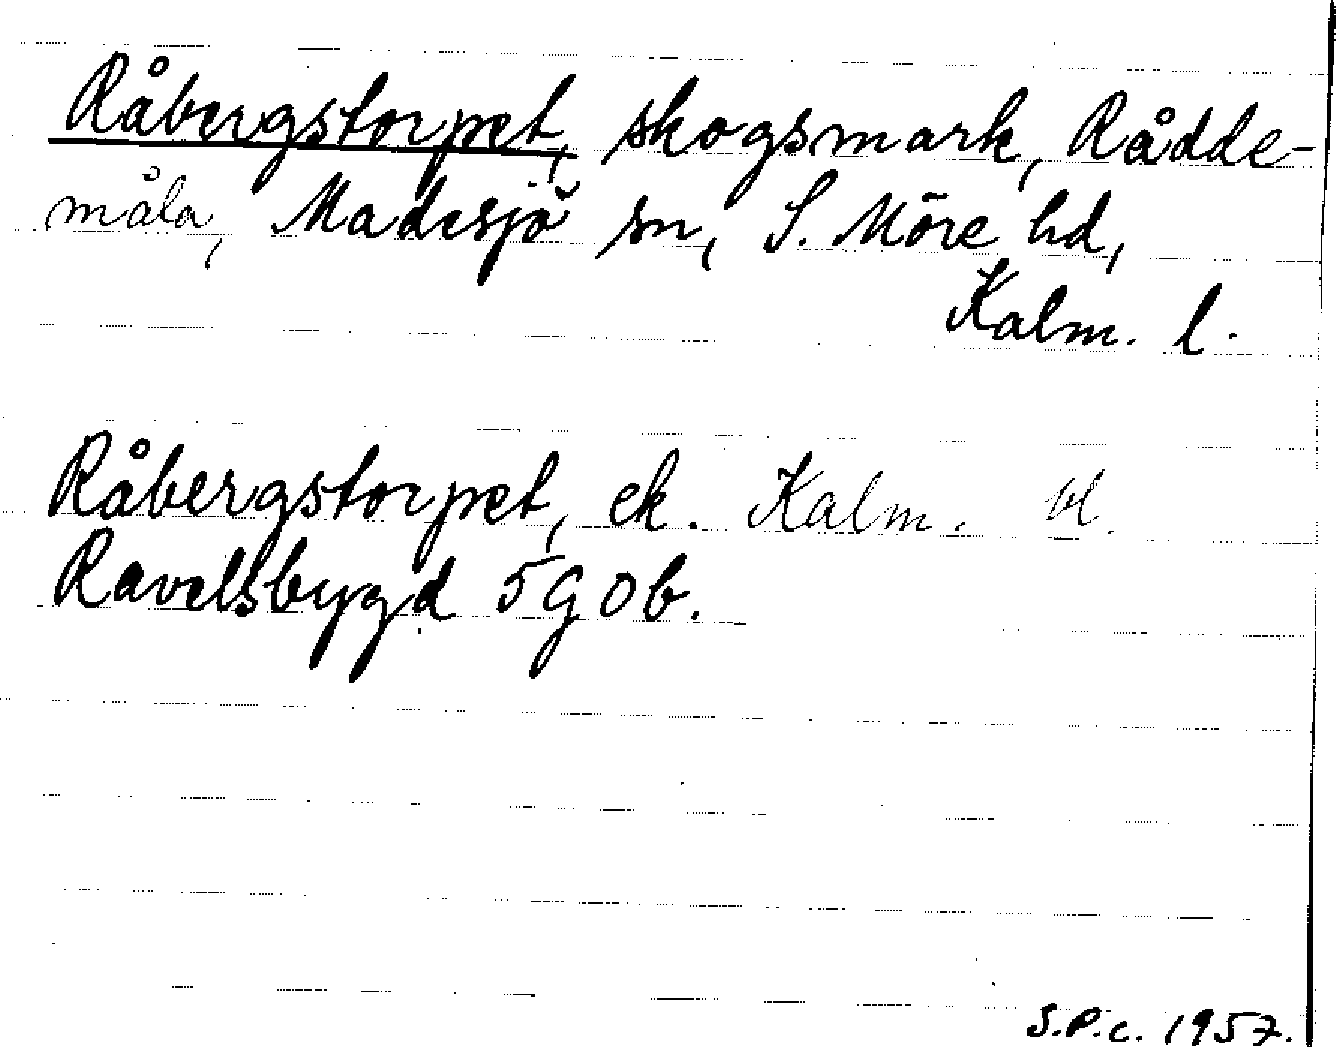 Råbergstorpet, skogsmark, Rådde-
måla, Madesjö sn, S. Möre hd,
Kalm. l.
Råbergstorpet, ek. Kalm. bl.
Ravelsbygd 5G0b.
S.P.C. 1957.